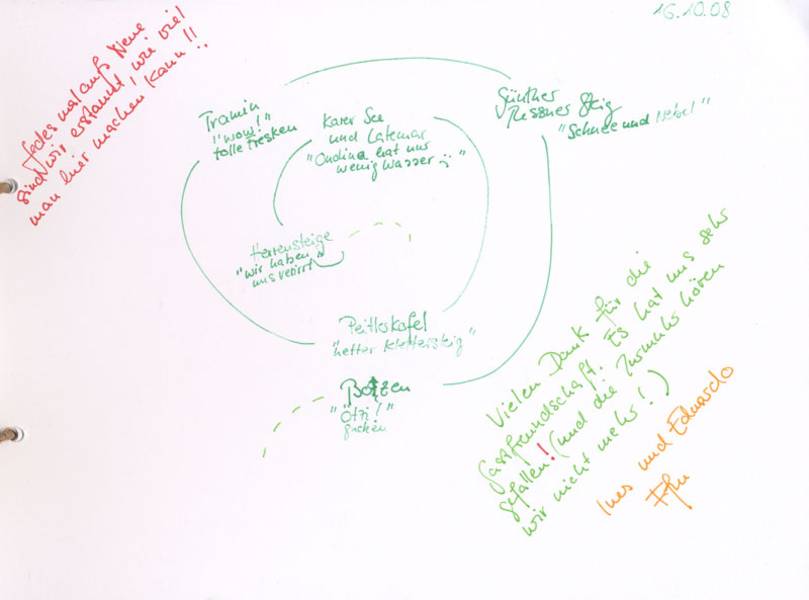 16.10.08
Jedes mal aufs Neue
sind wir erstaunt, wie viel
man hier machen kann!!
Tramin
"wow!"
tolle Fresken
Karer See
und Latemar
"Ondina hat nur
wenig Wasser :("
Günther
Messner Steig
"Schnee und Nebel"
Herrensteige
"wir haben
uns verirrt"
Peitlerkofel
"netter Klettersteig"
Botzen
"Ötzi!"
gucken
Vielen Dank für die
Gastfreundschaft. Es hat uns sehr
gefallen! (und die
wir nicht mehr!)
hören
Ines und Eduardo